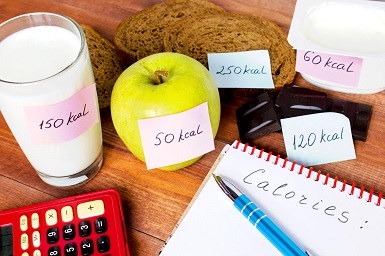 60 kcal
250 kcal
150 kcal
50 kcal
120 kcal
Calories :